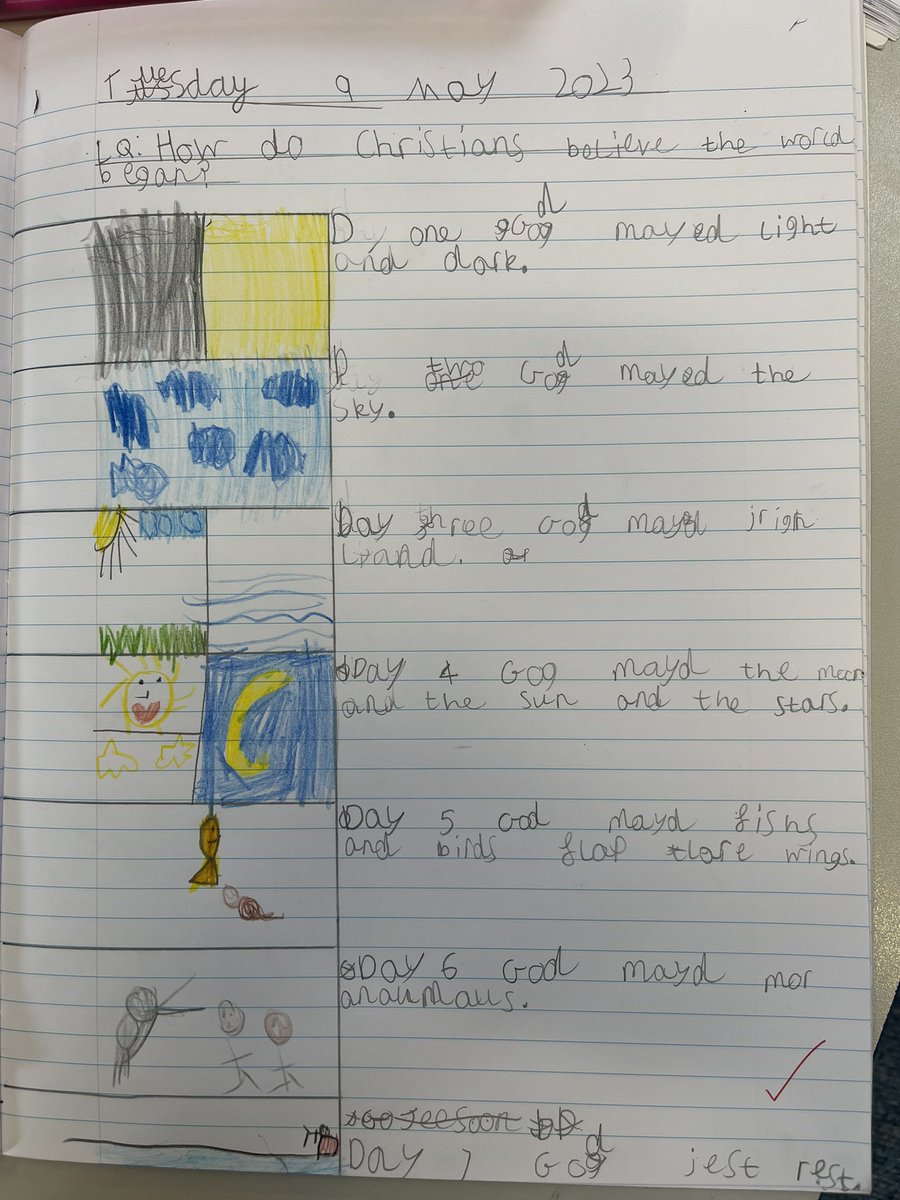 Tuesday 9 May 2023
LQ: How do Christians believe the world
began?
Day one God mayed light
and dark.
Day two God mayed the
sky.
Day three God mayd
Land.
Day 4 God mayd the moon
and the sun and the stars.
Day 5 God mayd fishs
and birds flap thare wings.
Day 6 God mayd mor
anaumaus.
Day 7 God jest rest.